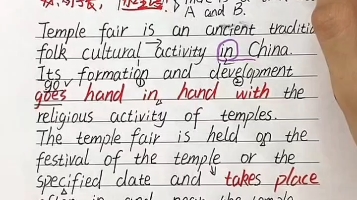 A and B.
Temple fair is an ancient
folk cultural activity in China.
Its formation and development
goes hand in hand with the
religious activity of temples.
The temple fair is held on the
festival of the temple or the
specified date and takes place